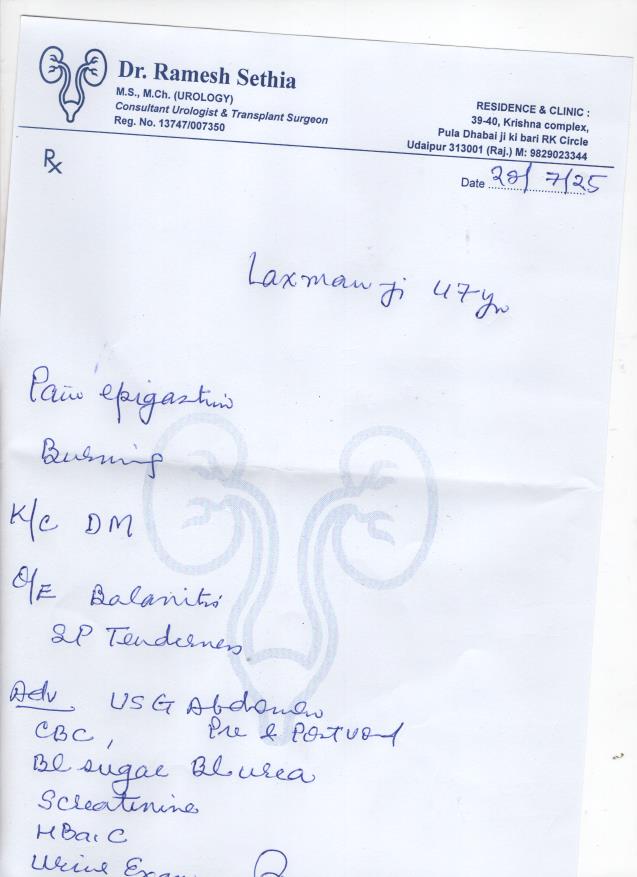 Dr. Ramesh Sethia
M.S., M.Ch. (UROLOGY)
Consultant Urologist & Transplant Surgeon
Reg. No. 13747/007350
RESIDENCE & CLINIC :
39-40, Krishna complex,
Pula Dhabai ji ki bari RK Circle
Udaipur 313001 (Raj.) M: 9829023344
Rx
Date 20/7/25
Laxman ji 47yr
Pain epigastric
Burning
K/C DM
O/E Balanitis
SP Tenderness
Adv USG Abdomen
Pre & Postvoid
CBC,
Bl sugar Bl urea
S creatinine
HBa1C
Urine Exam